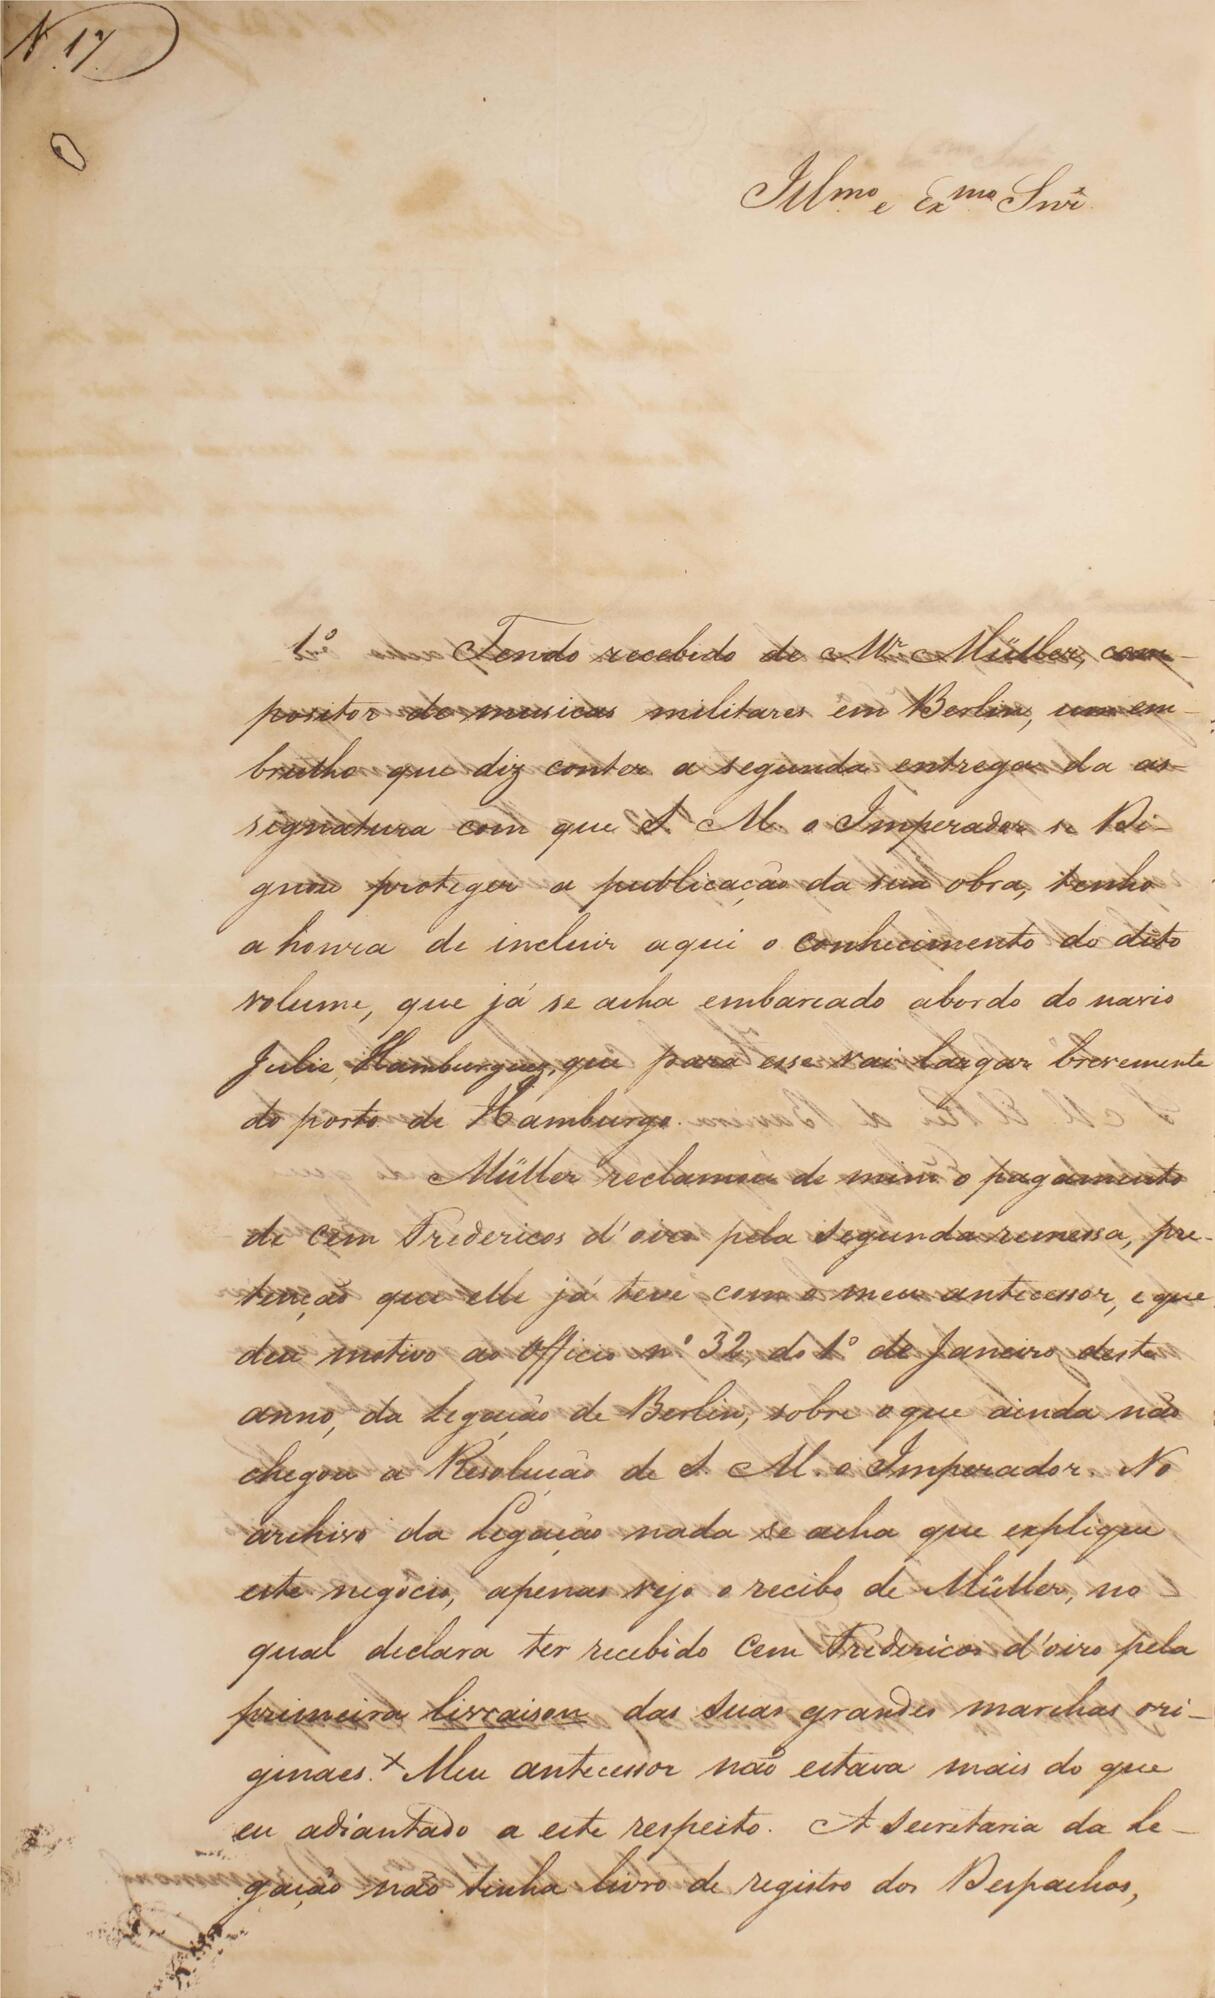 N. 17
Illmo e Exmo Snr.
1º Tendo recebido de Mr. Müller, com-
positor de musicas militares em Berlin, um em-
brulho que diz conter a segunda entrega da as-
signatura com que S. M. o Imperador se Di-
gnou proteger a publicação da sua obra, tenho
a honra de incluir aqui o conhecimento do dito
volume, que já se acha embarcado abordo do navio
Julie, Hamburguez, que para esse vai largar brevemente
do porto de Hamburgo.
Müller reclamou de mim o pagamento
de cem Fredericos d'oiro pela segunda remessa, pre-
tenção que elle já teve com o meu antecessor, e que
deu motivo ao Officio nº 32, do 1º de Janeiro deste
anno, da Legação de Berlin, sobre o que ainda não
chegou a Resolução de S. M. o Imperador. No
archivo da Legação nada se acha que explique
este negocio, apenas vejo o recibo de Müller, no
qual declara ter recebido cem Fredericos d'oiro pela
primeira livraison das suas grandes marchas ori-
ginaes. x Meu antecessor não estava mais do que
eu adiantado a este respeito. A Secretaria da Le-
gação não tinha livro de registro dos Despachos,